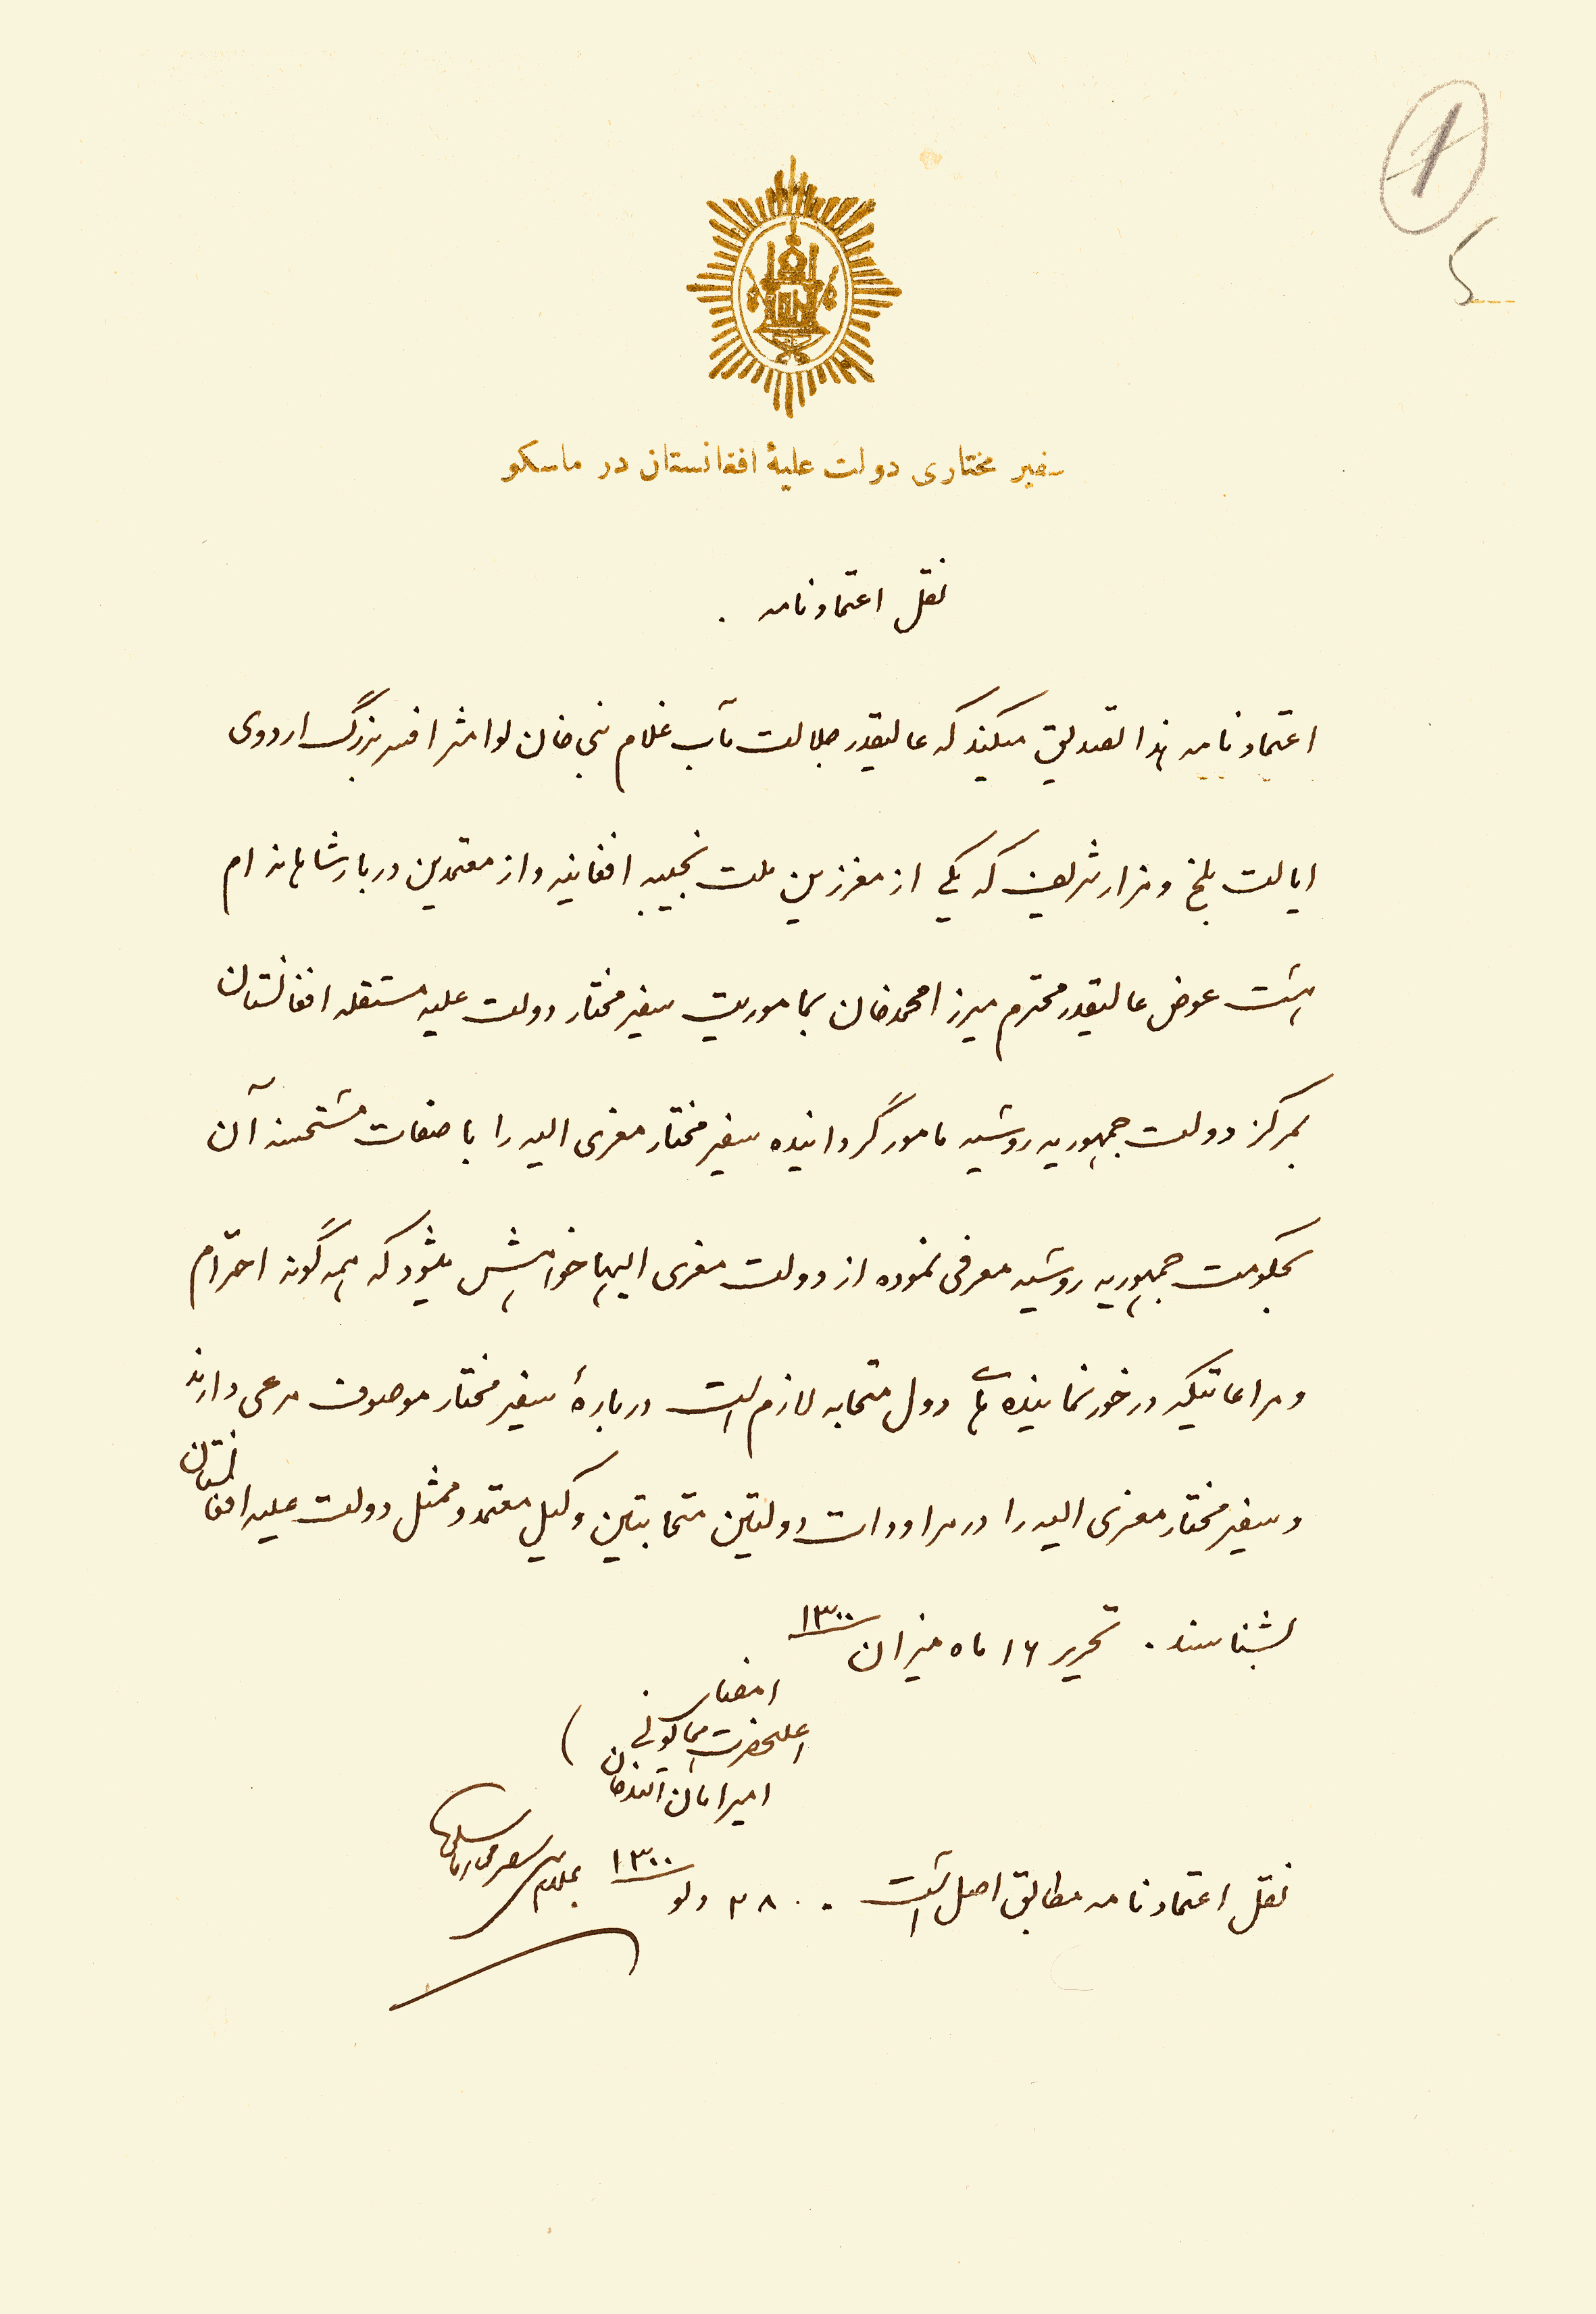 سفیر مختاری دولت علیهٔ افغانستان در ماسکو
نقل اعتماد نامه .
اعتماد نامه هذا تصدیق میکند که عالیقدر جلالت مآب غلام نبی خان لوامشر افسر بزرگ اردوی
ایالت بلخ و مزار شریف که یکے از معززین ملت نجیبه افغانیه و از معتمدین دربار شاهانه ام
است عوض عالیقدر محترم میرزا محمد خان بماموریت سفیر مختار دولت علیه مستقله افغانستان
بمرکز دولت جمهوریه روسیه مامور گردانیده سفیر مختار معزی الیه را با صفات مستحسنه آن
بحکومت جمهوریه روسیه معرفی نموده از دولت معزی الیها خواهش میشود که همه گونه احترام
و مراعاتیکه در خور نماینده هاے دول متحابه لازم است دربارهٔ سفیر مختار موصوف مرعی دارند
و سفیر مختار معزی الیه را در مراودات دولتین متحابتین وکیل معتمد و ممثل دولت علیه افغانستان
بشناسند . تحریر ۱۶ ماه میزان ۱۳۰۰
امضاء
اعلیحضرت همایونی
امیر امان الله خان
نقل اعتماد نامه مطابق اصل است . ۲۸ دلو ۱۳۰۰